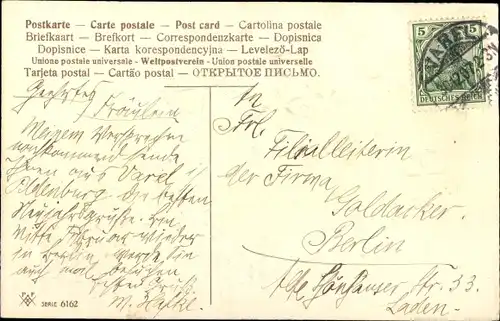 Postkarte — Carte postale — Post card — Cartolina postale
Briefkaart — Brefkort — Correspondenzkarte — Dopisnica
Dopisnice — Karta korespondencyjna — Levelező-Lap
Unione postale universale - Weltpostverein - Union postale universelle
Tarjeta postal — Cartão postal — ОТКРЫТОЕ ПИСЬМО.
5 5
VAREL
DEUTSCHES REICH
Geehrtes Fräulein
Meinem Versprechen
nachkommend sende
Ihnen aus Varel i/
Oldenburg die besten
Neujahrsgrüße. Bin
Mitte Februar wieder
in Berlin, werde Sie
auch mal besuchen
Gruß
M.
An
Frl.
Filialleiterin
der Firma
Goldacker.
Berlin
Alte Schönhauser Str. 33.
Laden.
SERIE 6162